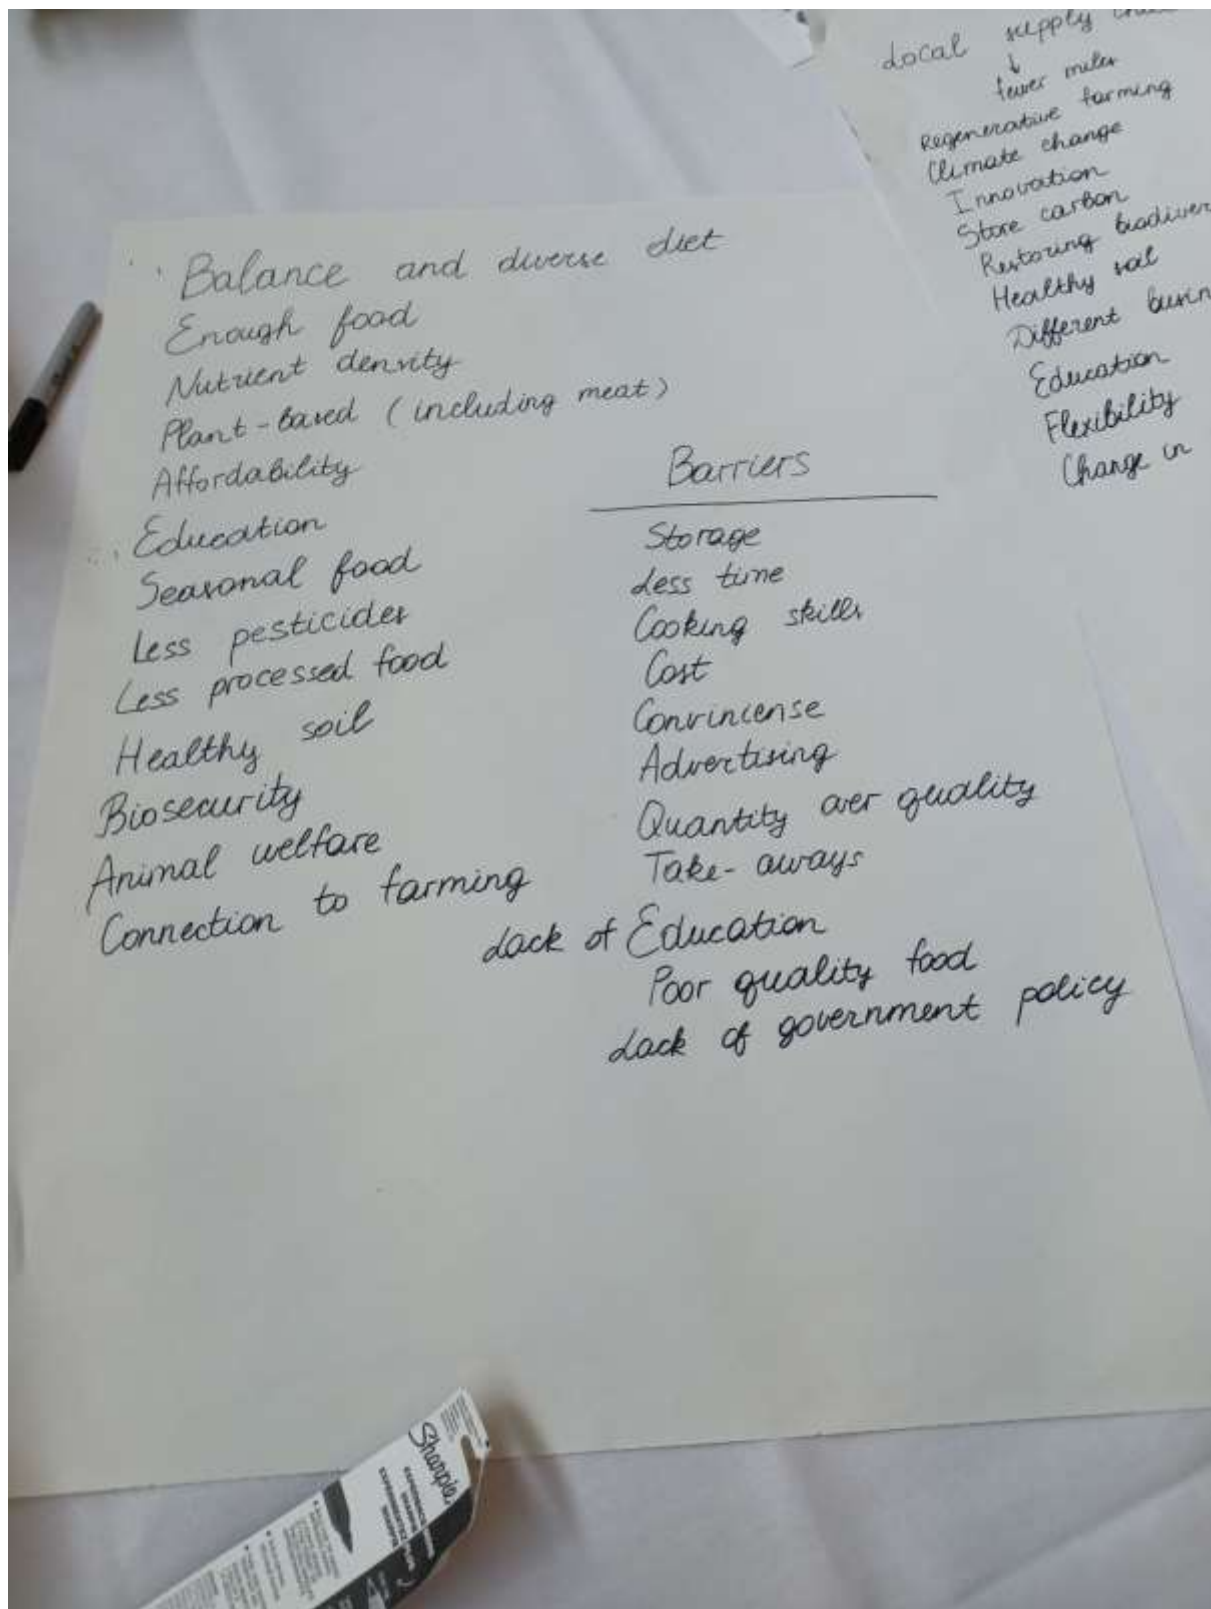 Balance and diverse diet
Enough food
Nutrient density
Plant-based (including meat)
Affordability
Education
Seasonal food
Less pesticides
Less processed food
Healthy soil
Biosecurity
Animal welfare
Connection to farming
Barriers
Storage
Less time
Cooking skills
Cost
Convincense
Advertising
Quantity over quality
Take-aways
Lack of Education
Poor quality food
Lack of government policy
Local supply
↓
fewer miles
Regenerative farming
Climate change
Innovation
Store carbon
Restoring biodiver
Healthy soil
Different busin
Education
Flexibility
Change in
Sharpie